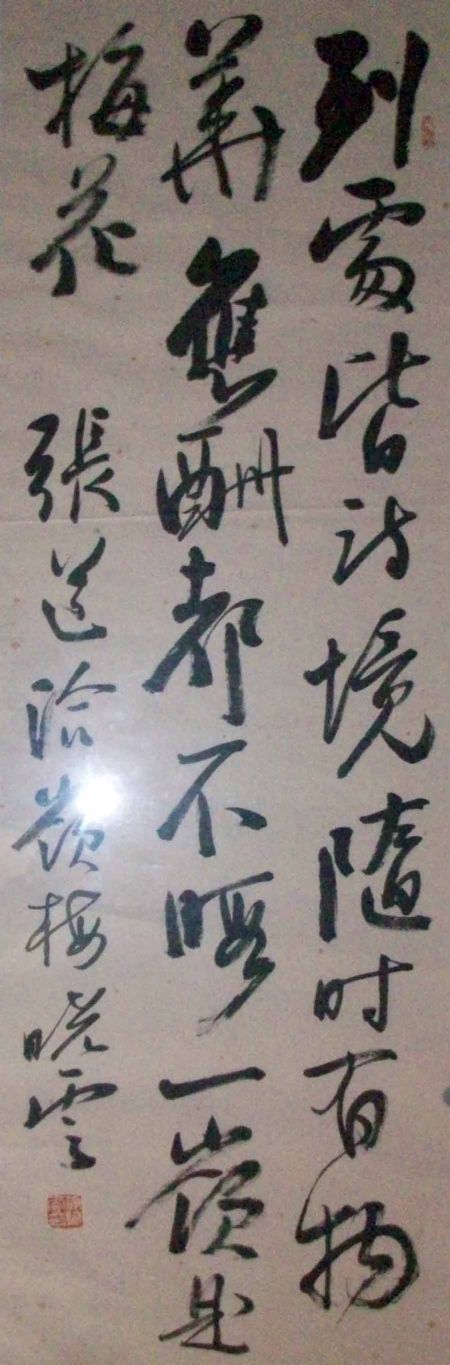 到處皆诗境隨时有物
華應酬都不暇一嶺是
梅花 張道洽嶺梅晓雲